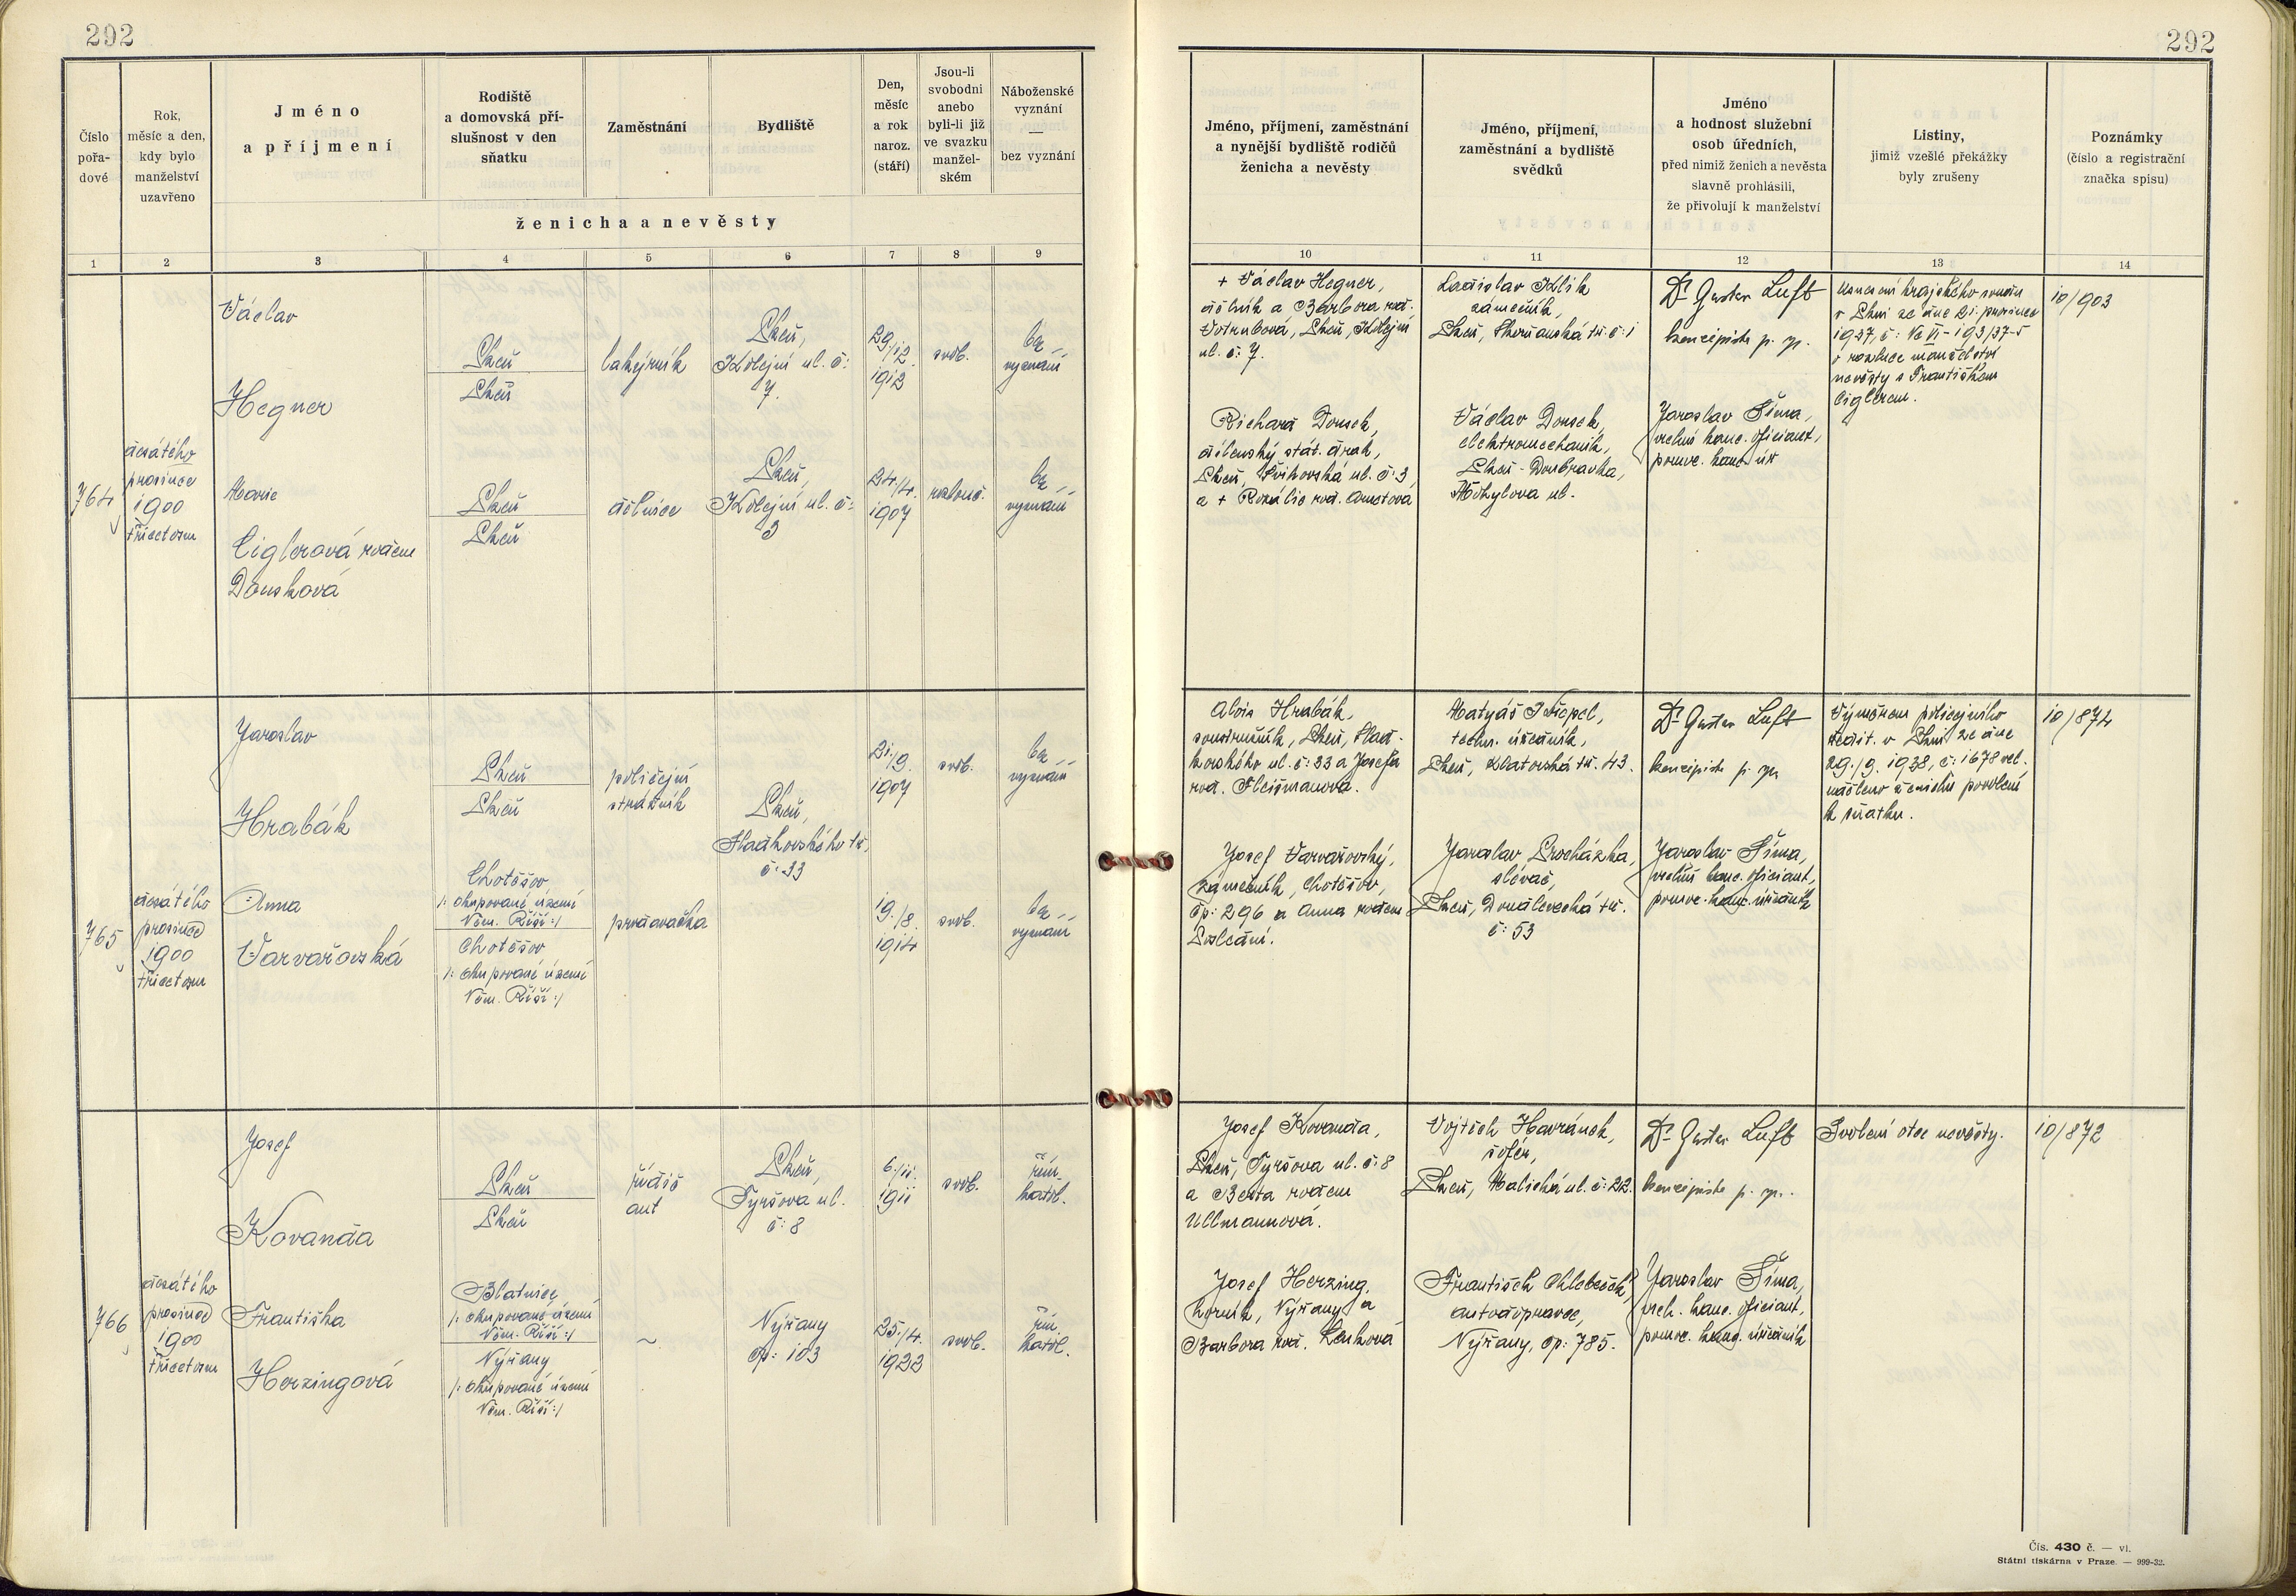 292
292
Číslo
pořa-
dové
Rok,
měsíc a den,
kdy bylo
manželství
uzavřeno
Jméno
a příjmení
Rodiště
a domovská pří-
slušnost v den
sňatku
Zaměstnání
Bydliště
Den,
měsíc
a rok
naroz.
(stáří)
Jsou-li
svobodni
anebo
byli-li již
ve svazku
manžel-
ském
Náboženské
vyznání
—
bez vyznání
ženicha a nevěsty
1 2 3 4 5 6 7 8 9
Jméno, příjmení, zaměstnání
a nynější bydliště rodičů
ženicha a nevěsty
Jméno, příjmení,
zaměstnání a bydliště
svědků
Jméno
a hodnost služební
osob úředních,
před nimiž ženich a nevěsta
slavně prohlásili,
že přivolují k manželství
Listiny,
jimiž vzešlé překážky
byly zrušeny
Poznámky
(číslo a registrační
značka spisu)
10 11 12 13 14
764
desátého
prosince
1900
třicetosm
Václav
Hegner
Plzeň
Plzeň
lakýrník
Plzeň,
Kolejní ul. č:
7.
29./12.
1912
svob.
bez
vyznání
Marie
Ciglerová rozem
Douskova
Plzeň
Plzeň
dělnice
Plzeň,
Kolejní ul. č:
3
24./4.
1907
rozlouč.
bez
vyznání
+ Václav Hegner,
dělník a Barbora roz.
Votrubová, Plzeň, Kolejní
ul. č: 7.
Richard Dousek,
dělenský stát. drah,
Plzeň, Švihovská ul. č: 3,
a + Rozálie roz.
Ladislav Klik
zámečník,
Plzeň, tř. č: 1
Václav Dousek,
elektromechanik,
Plzeň - Doubravka,
Mohylova ul.
Dr Gustav Luft
koncipista p. sp.
Jaroslav Šíma,
vrchní kanc. oficiant,
pomoc. kanc. úř
Usnesení krajského soudu
v Plzni ze dne 21. prosince
1937, č: Nc VI - 193/37-5
o rozluce manželství
nevěsty s Františkem
Ciglerem.
10/903
765
desátého
prosince
1900
třicetosm
Jaroslav
Hrabák
Plzeň
Plzeň
policejní
strážník
Plzeň,
Sladkovského tř.
č: 33
21./9.
1907
svob.
bez
vyznání
Anna
Varvařovská
Chotěšov
/: okupované území
Něm. Říší :/
Chotěšov
/: okupované území
Něm. Říší :/
prodavačka
19./8.
1914
svob.
bez
vyznání
Alois Hrabák,
soustružník, Plzeň, Slad-
kovského ul. č: 33 a Josefa
roz. Flaišmanová.
Josef Varvařovský,
zámečník, Chotěšov,
čp: 296 a Anna rozem
Matyáš Štiepel,
techn. úředník,
Plzeň, Klatovská tř. 43.
Jaroslav Procházka,
slévač,
Plzeň, Doudlevecká tř.
č: 53
Dr Gustav Luft
koncipista p. sp.
Jaroslav Šíma,
vrchní kanc. oficiant,
pomoc. kanc. úředník
Výměrem policejního
ředit. v Plzni ze dne
29./9. 1938, č: 1678 vel.
uděleno ženichu povolení
k sňatku.
10/874
766
desátého
prosince
1900
třicetosm
Josef
Kovanda
Plzeň
Plzeň
řidič
aut
Plzeň,
Tyršova ul.
č: 8
6./11.
1911
svob.
řím.
katol.
Františka
Herzingová
Blatnice,
/: okupované území
Něm. Říší :/
Nýřany
/: okupované území
Něm. Říší :/
~
Nýřany
čp: 103
25./4.
1922
svob.
řím
katol.
Josef Kovanda,
Plzeň, Tyršova ul. č: 8
a Berta rozem
Ullmannová.
Josef Herzing,
horník, Nýřany a
Barbora roz.
Vojtěch Havránek,
šofér,
Plzeň, Malická ul. č: 22.
František Chlebeček,
autodopravce,
Nýřany, čp: 785.
Dr Gustav Luft
koncipista p. sp.
Jaroslav Šíma,
vrch. kanc. oficiant,
pomoc. kanc. úředník
Svolení otce nevěsty.
10/872
Čís. 430 č. — vl.
Státní tiskárna v Praze. — 999-32.